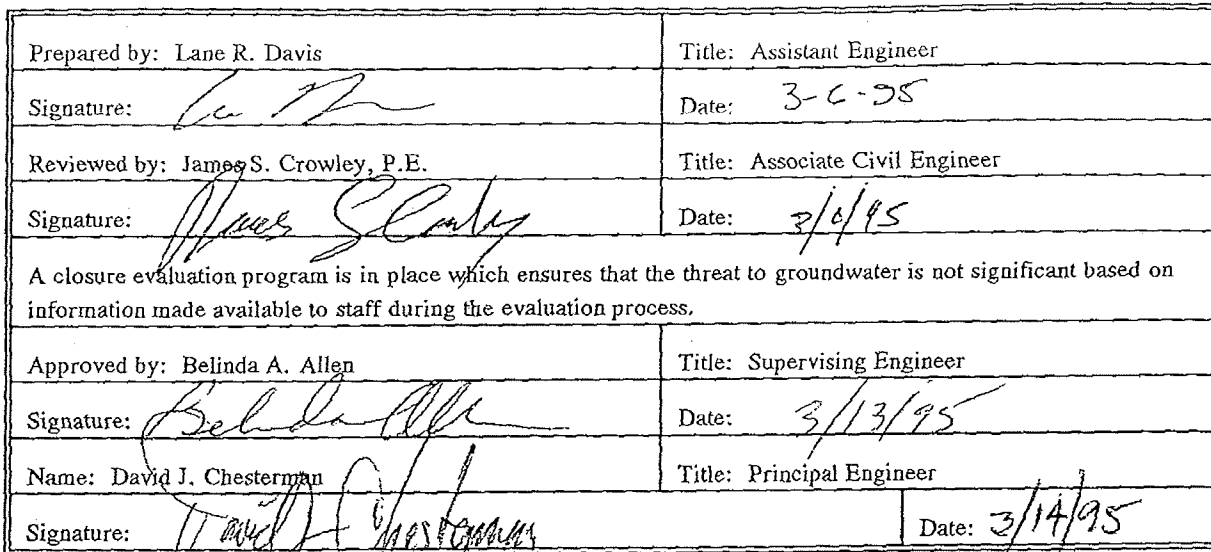 Prepared by: Lane R. Davis Title: Assistant Engineer
Signature: Date: 3-6-95
Reviewed by: James S. Crowley, P.E. Title: Associate Civil Engineer
Signature: James S Crowley Date: 3/6/95
A closure evaluation program is in place which ensures that the threat to groundwater is not significant based on
information made available to staff during the evaluation process.
Approved by: Belinda A. Allen Title: Supervising Engineer
Signature: Belinda Allen Date: 3/13/95
Name: David J. Chesterman Title: Principal Engineer
Signature: David J Chesterman Date: 3/14/95